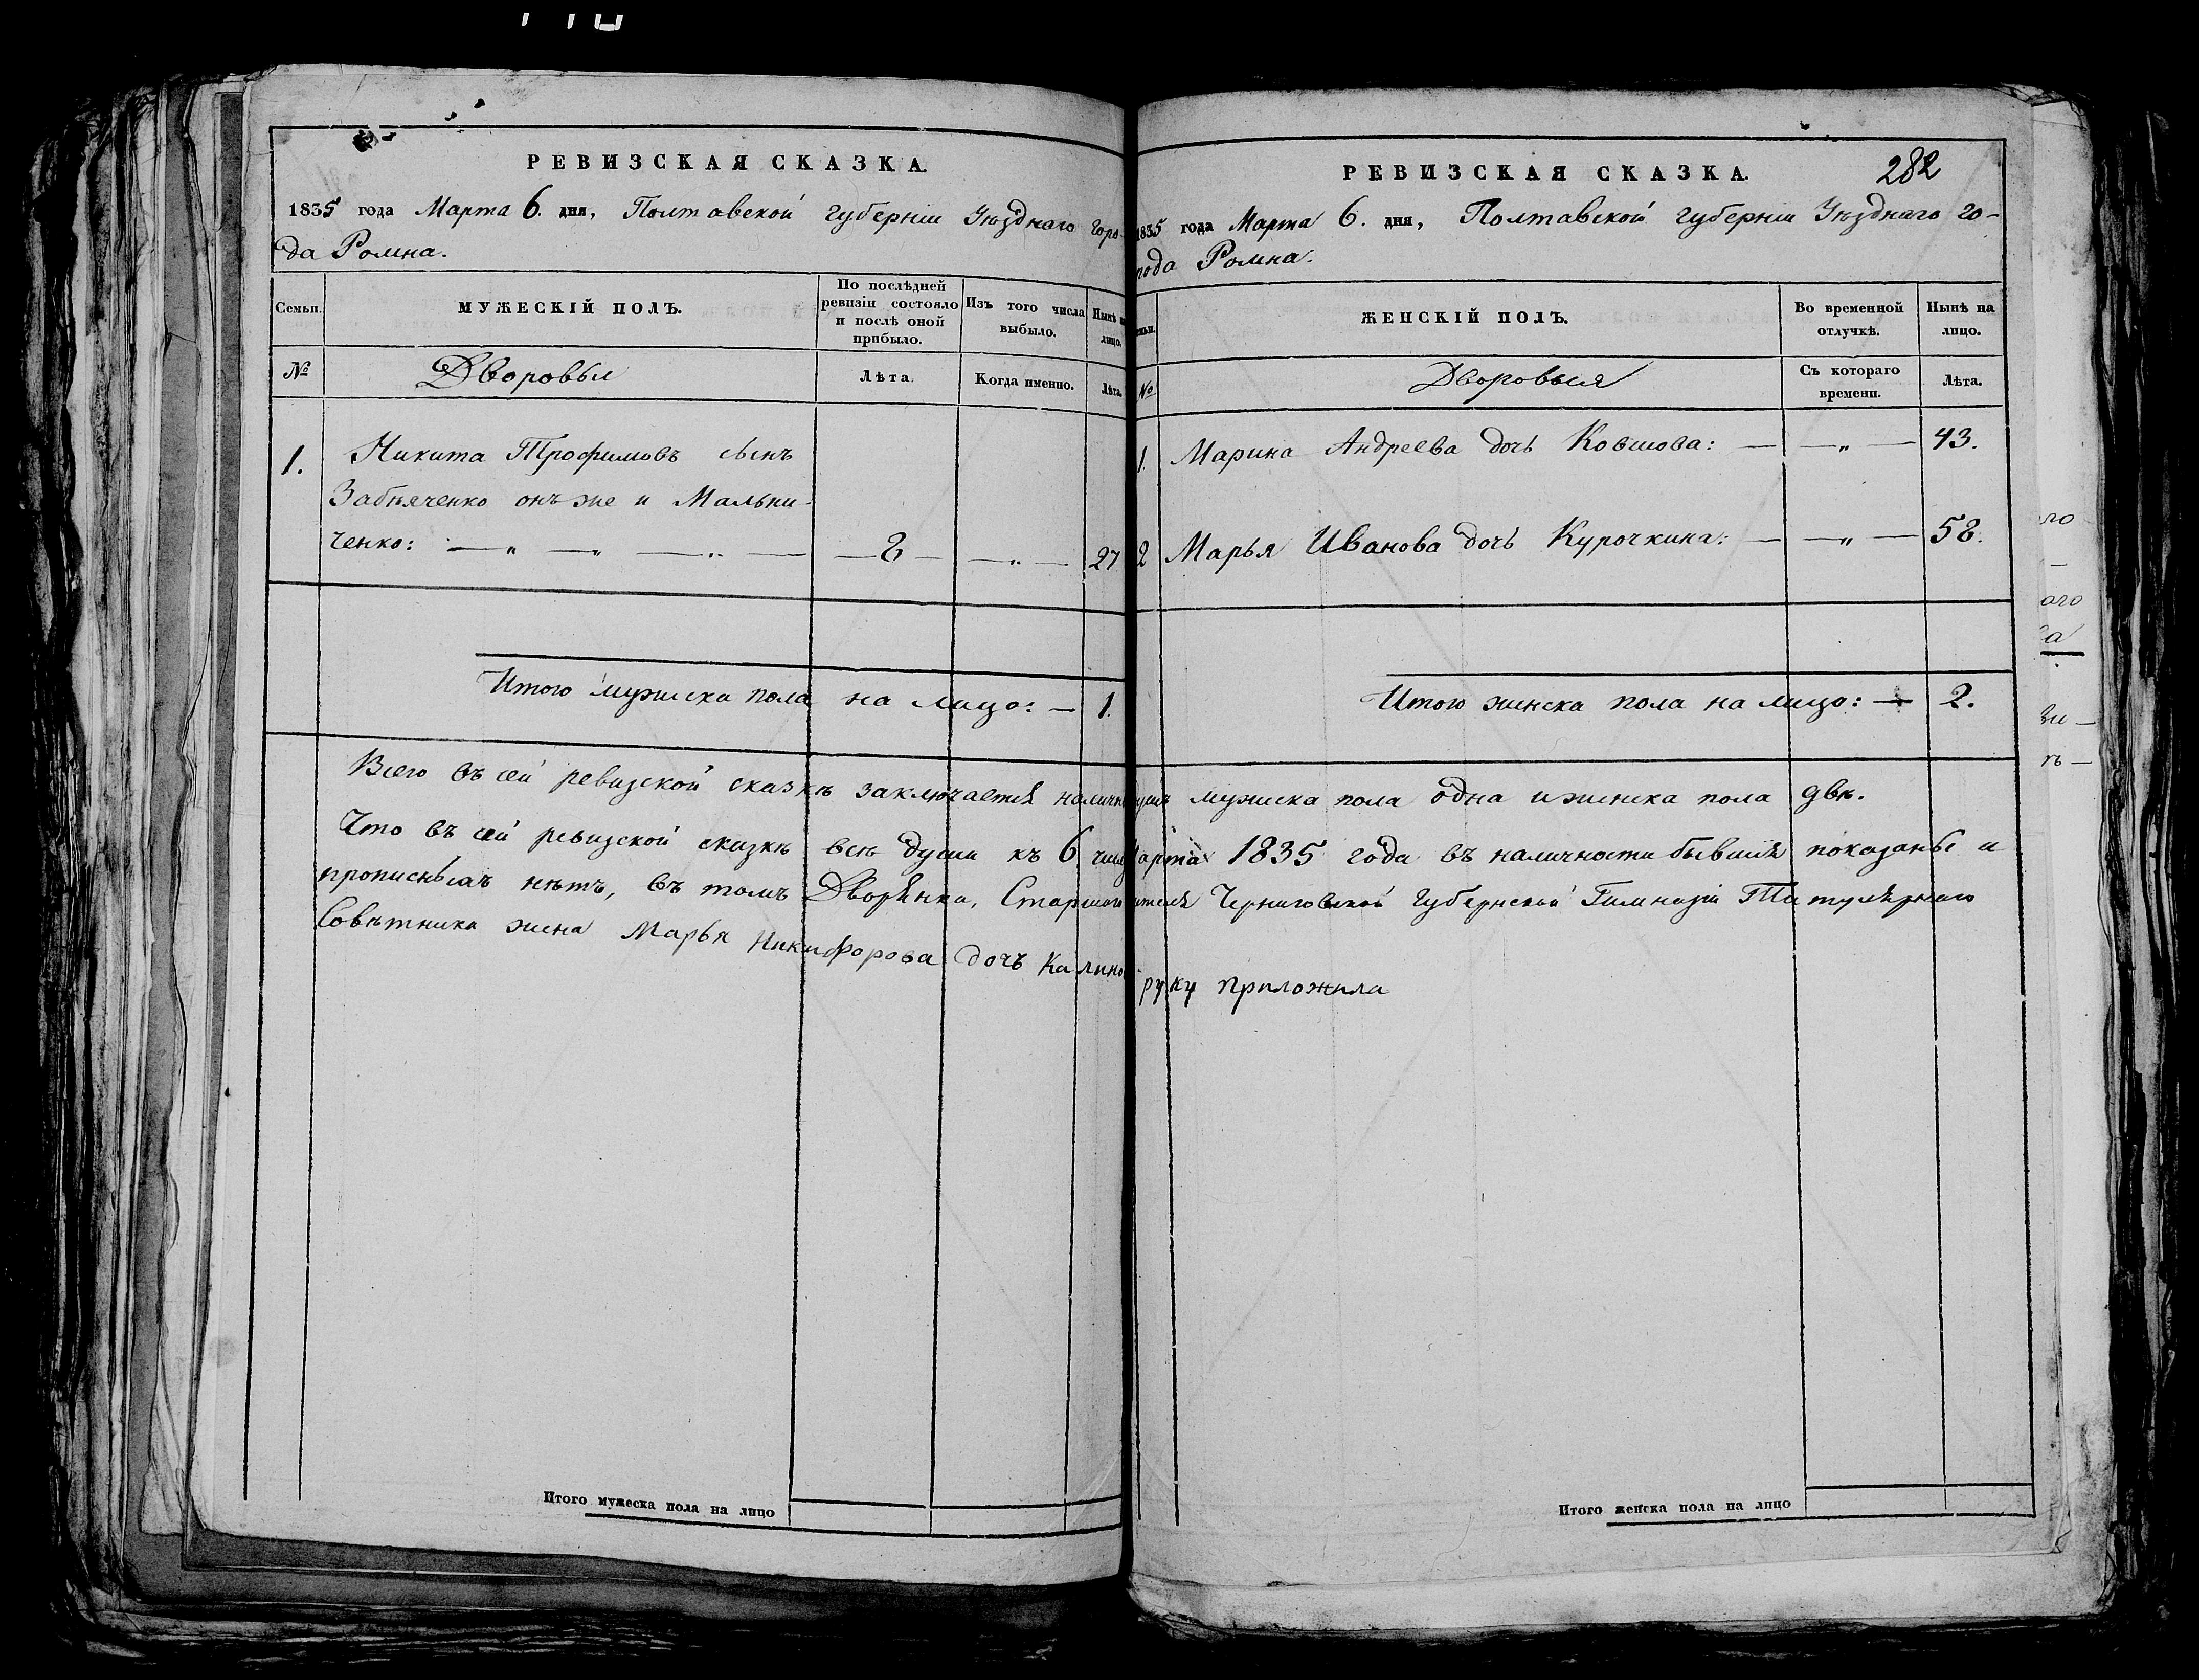 РЕВИЗСКАЯ СКАЗКА.
1835 года Марта 6. дня, Полтавской губерніи Уѣзднаго горо-
да Ромна.
Семьи.
МУЖЕСКІЙ ПОЛЪ.
По послѣдней ревизіи состояло и послѣ оной прибыло.
Изъ того числа выбыло.
Нынѣ на лицо.
№
Дворовыя
Лѣта.
Когда именно.
Лѣта.
1. Никита Трофимовъ сынъ
онъ же и Мальни-
ченко: — „ — „ — „ — — 8 — — „ — 27
Итого мужеска пола на лицо: — 1.
Итого мужеска пола на лицо
282
РЕВИЗСКАЯ СКАЗКА.
1835 года Марта 6. дня, Полтавской губерніи Уѣзднаго го-
рода Ромна.
ЖЕНСКІЙ ПОЛЪ.
Во временной отлучкѣ.
Нынѣ на лицо.
№
Дворовыя
Съ котораго времени.
Лѣта.
1. Марина Андреева дочь Ковшова: — — „ — 43.
2 Марья Иванова дочь Курочкина: — — „ — 58.
Итого женска пола на лицо: — 2.
Всего въ сей ревизской сказкѣ заключается мужеска пола одна и женска пола двѣ.
Что въ сей ревизской сказкѣ всѣ души къ 6 1835 года въ наличности бывшія показаны и
прописныхъ нѣтъ, въ томъ Дворянка, Черниговской Губернской Гимназіи Титулярнаго
Совѣтника жена Марья Никифорова дочь руку приложила
Итого женска пола на лицо